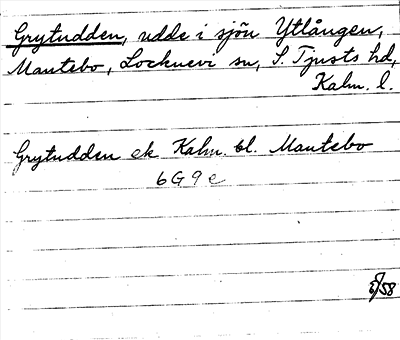 Grytudden, udde i sjön Ytlången,
Mantebo, Locknevi sn, S. Tjusts hd,
Kalm. l.
Grytudden ek Kalm. bl. Mantebo
6G9e
/58